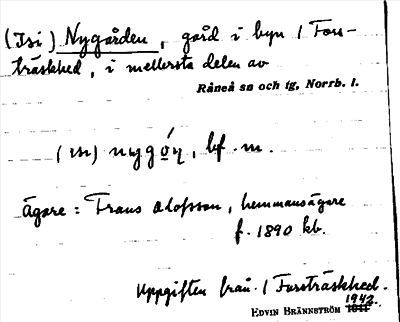 (Isi) Nygården, gård i byn 1 Fors-
träskhed, i mellersta delen av
Råneå sn och tg, Norrb. l.
(isi) nygó̱n, bf. m.
Ägare: Frans Olofsson, hemmansägare
f. 1890 kb.
Uppgiften från 1 Forsträskhed.
1942.
EDVIN BRÄNNSTRÖM 1941.